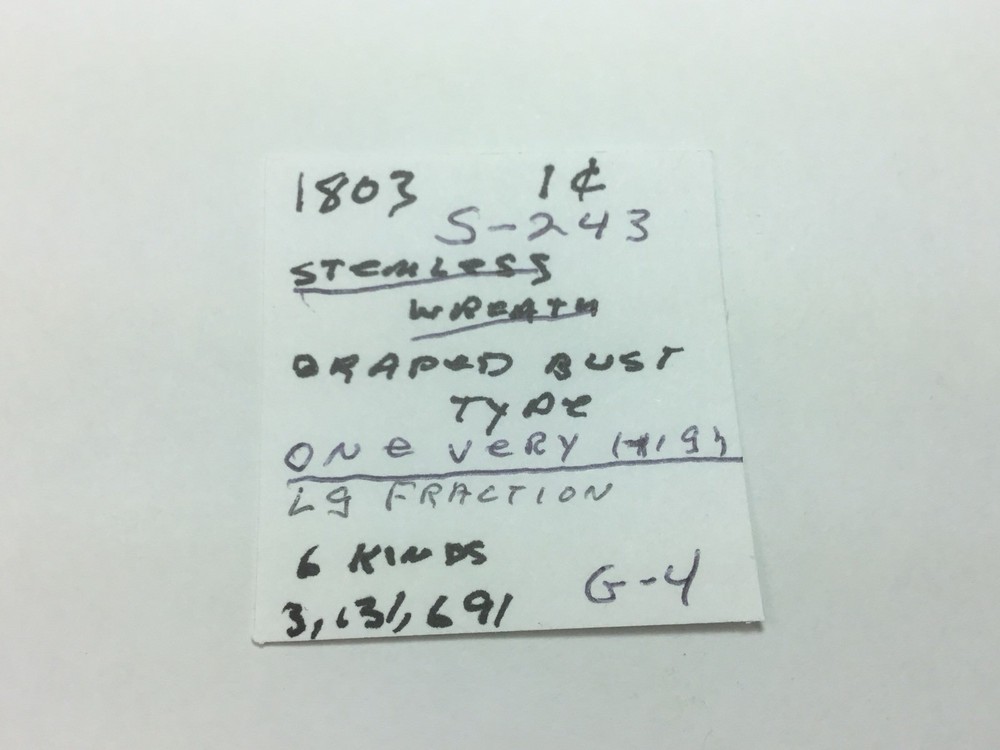 1803 1¢
S-243
STEMLESS
WREATH
DRAPED BUST
TYPE
ONE VERY HIGH
LG FRACTION
6 KINDS
G-4
3,131,691